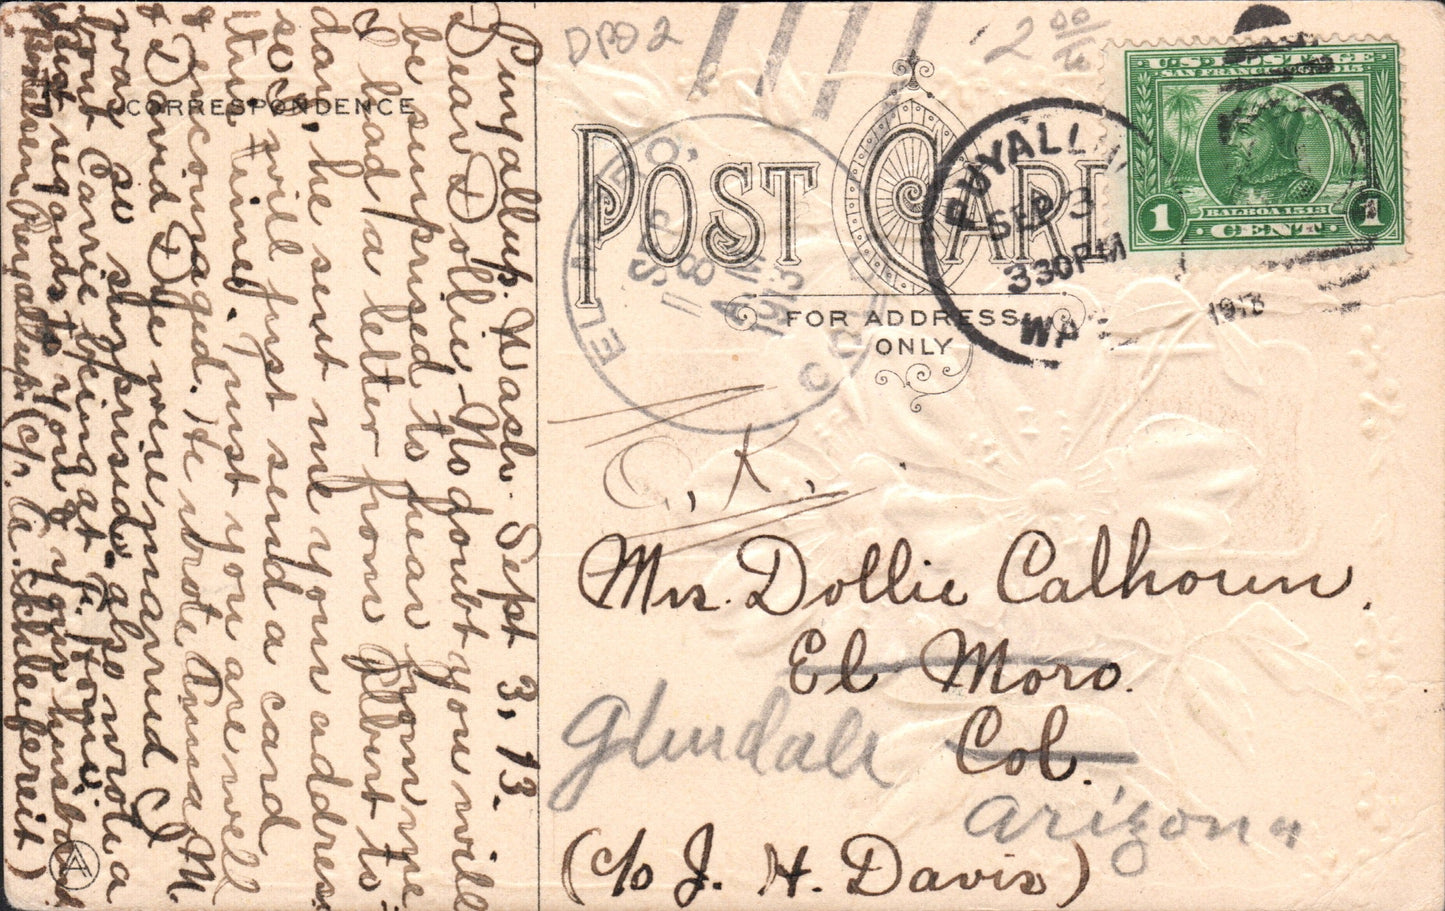 DPO 2
2 00/15
U.S. POSTAGE
SAN FRANCISCO 1915
1
BALBOA 1513
1
CENT
PUYALLUP
SEP 3
330PM
WASH
1913
EL MORO,
SEP
8
A M
1913
COLO
POST CARD
FOR ADDRESS
ONLY
CORRESPONDENCE
O.K.
Mrs. Dollie Calhoun,
El Moro.
Col.
Glendale
Arizona
(c/o J. H. Davis)
Puyallup. Wash. Sept 3, 13.
Dear Dollie - No doubt you will
be surprised to hear from me
I had a letter from Albert to
day, he sent me your address
so will just send a card
this time. Trust you are well
& encouraged. He wrote Anna M.
& David Dye were married I
was so surprised. also wrote a
bout Carrie being at F. Home.
Kind regards to you & your husband
Puyallup. (c/o A. Schleifereit)